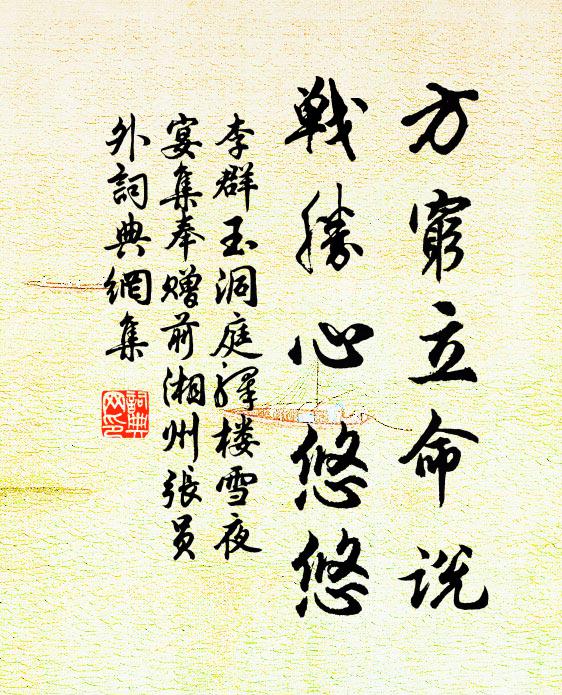 方窮立命説
戰勝心悠悠
李群玉洞庭驛楼雪夜
宴集奉贈前湘州張員
外詞典網集
詞典
网印